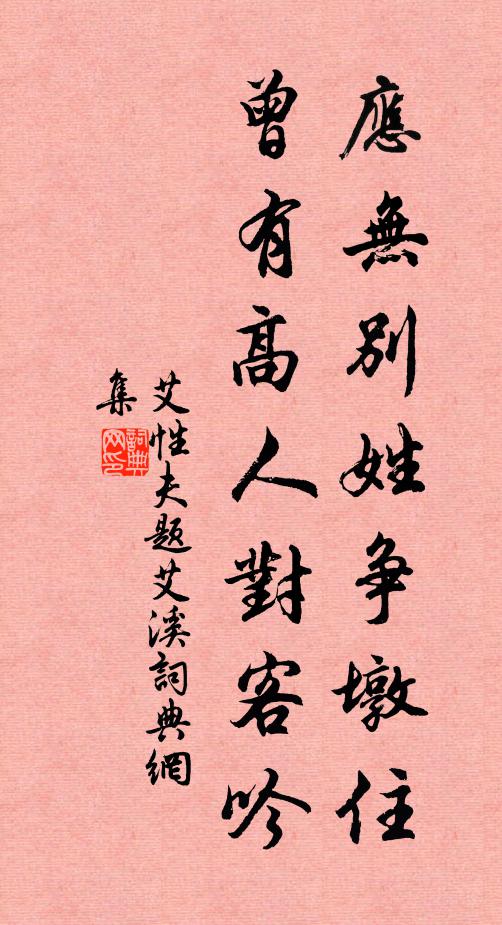 應無別姓争墩住
曾有高人對客吟
艾性夫題艾溪詞典網
集
詞典
网印